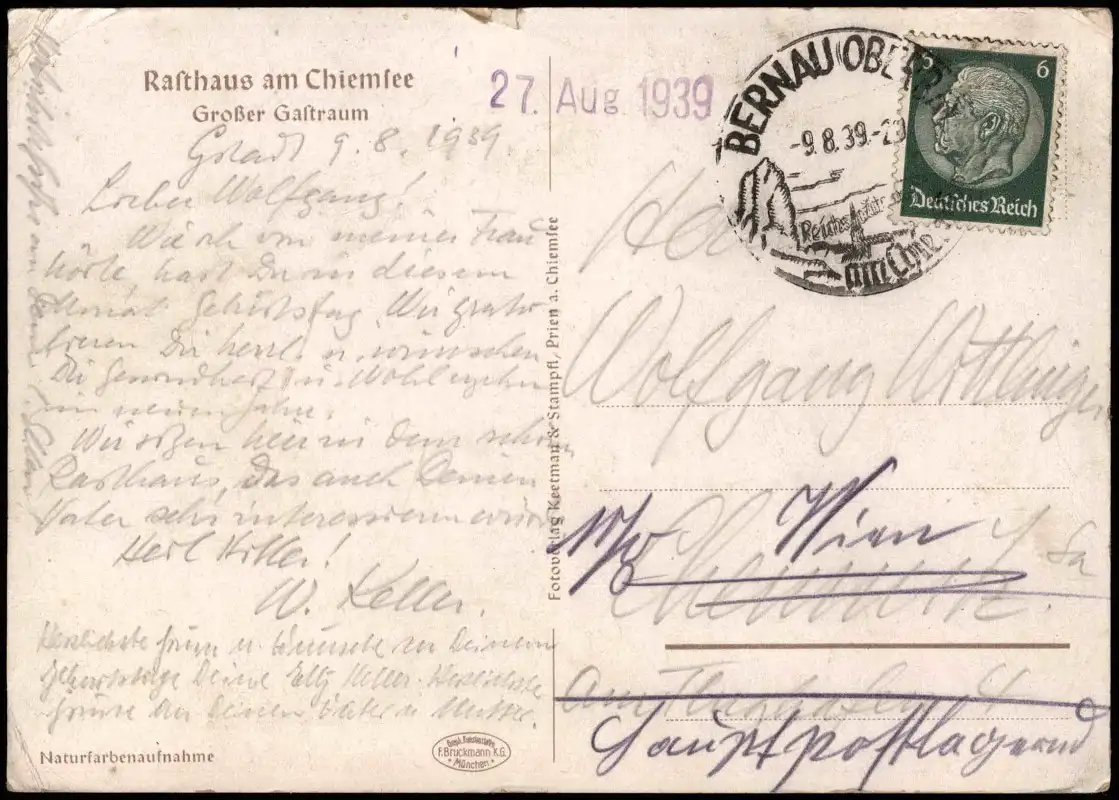 Rasthaus am Chiemsee
Großer Gastraum
27. Aug 1939
BERNAU (OBERB
-9.8.39.-20
Reichs
am Chie
5 6
Deutsches Reich
Gstadt 9.8.1939.
Lieber Wolfgang!
Wie ich von meiner Frau
hörte, hast Du in diesem
Monat Geburtstag. Wir gratu
lieren Dir herzl. u. wünschen
Dir Gesundheit u. Wohlergehen
im neuen Jahre.
Wir sitzen hier in dem schönen
Rasthaus, das auch Deinen
Vater sehr interessieren würde
Heil Hitler!
W. Keller.
Herzlichste Grüße u. Wünsche zu Deinem
Geburtstage Deine Elly Keller. Herzlichste
Grüße an Deinen Vater u. Mutter.
Naturfarbenaufnahme
Fotoverlag Keetman & Stampfl, Prien a. Chiemsee
F. Bruckmann K.G.
München
Wolfgang
Wien
Chemnitz / Sa
Am
Hauptpostlagernd